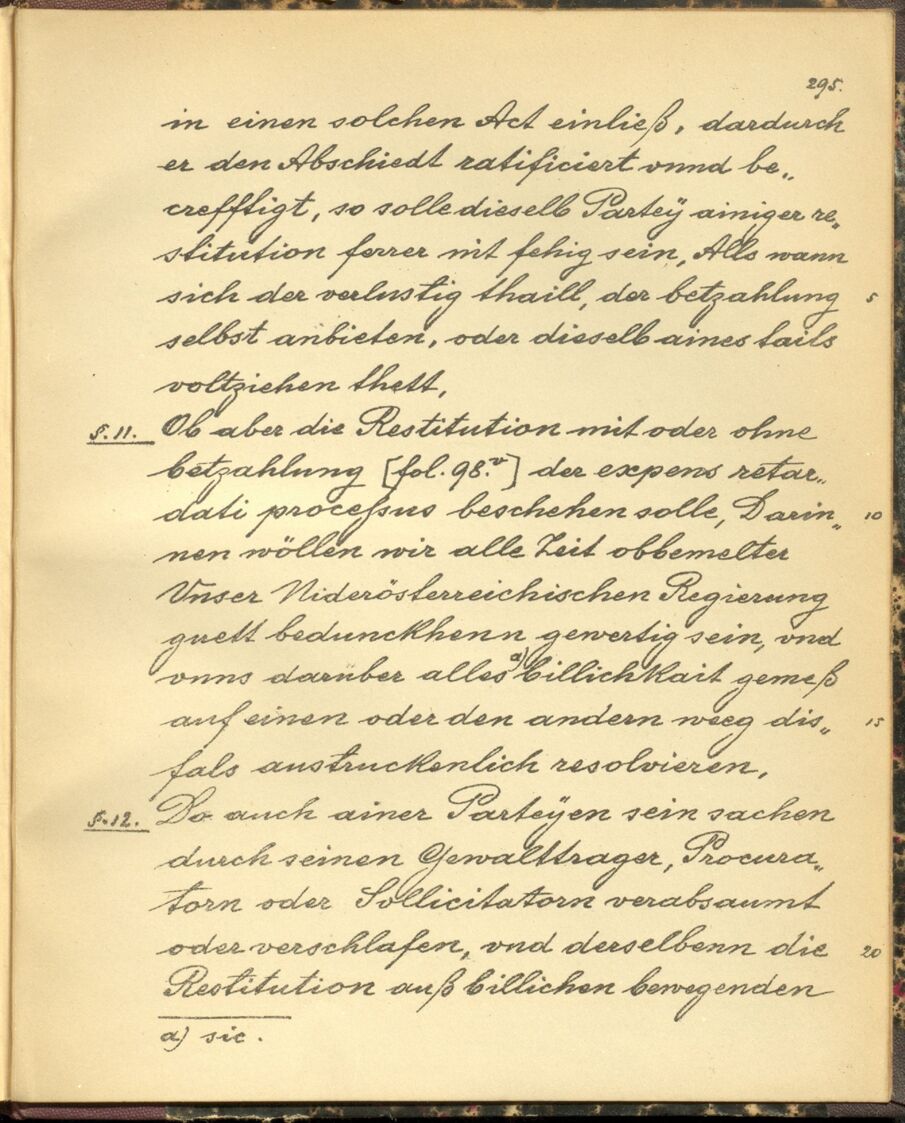 295.
in einen solchen Act einließ, dardurch
er den Abschiedt ratificiert vnnd be„
crefftigt, so solle dieselb Parteÿ ainiger re„
stitution ferrer nit fehig sein, Alls wann
sich der verlustig thaill, der betzahlung 5
selbst anbieten, oder dieselb aines tails
voltziehen thett,
§. 11. Ob aber die Restitution mit oder ohne
betzahlung [fol. 98.v] der expens retar„
dati processus beschehen solle, Darin„ 10
nen wöllen wir alle Zeit obbemelter
Vnser Niderösterreichischen Regierung
guett bedunckhenn gewertig sein, vnd
vnns darüber alles a) billichkait gemeß
auf einen oder den andern weeg dis„ 15
fals austruckenlich resolvieren,
§. 12. Do auch ainer Parteÿen sein sachen
durch seinen Gewalttrager, Procura„
torn oder Sollicitatorn verabsaumt
oder verschlafen, vnd derselbenn die 20
Restitution auß billichen bewegenden
a) sic.